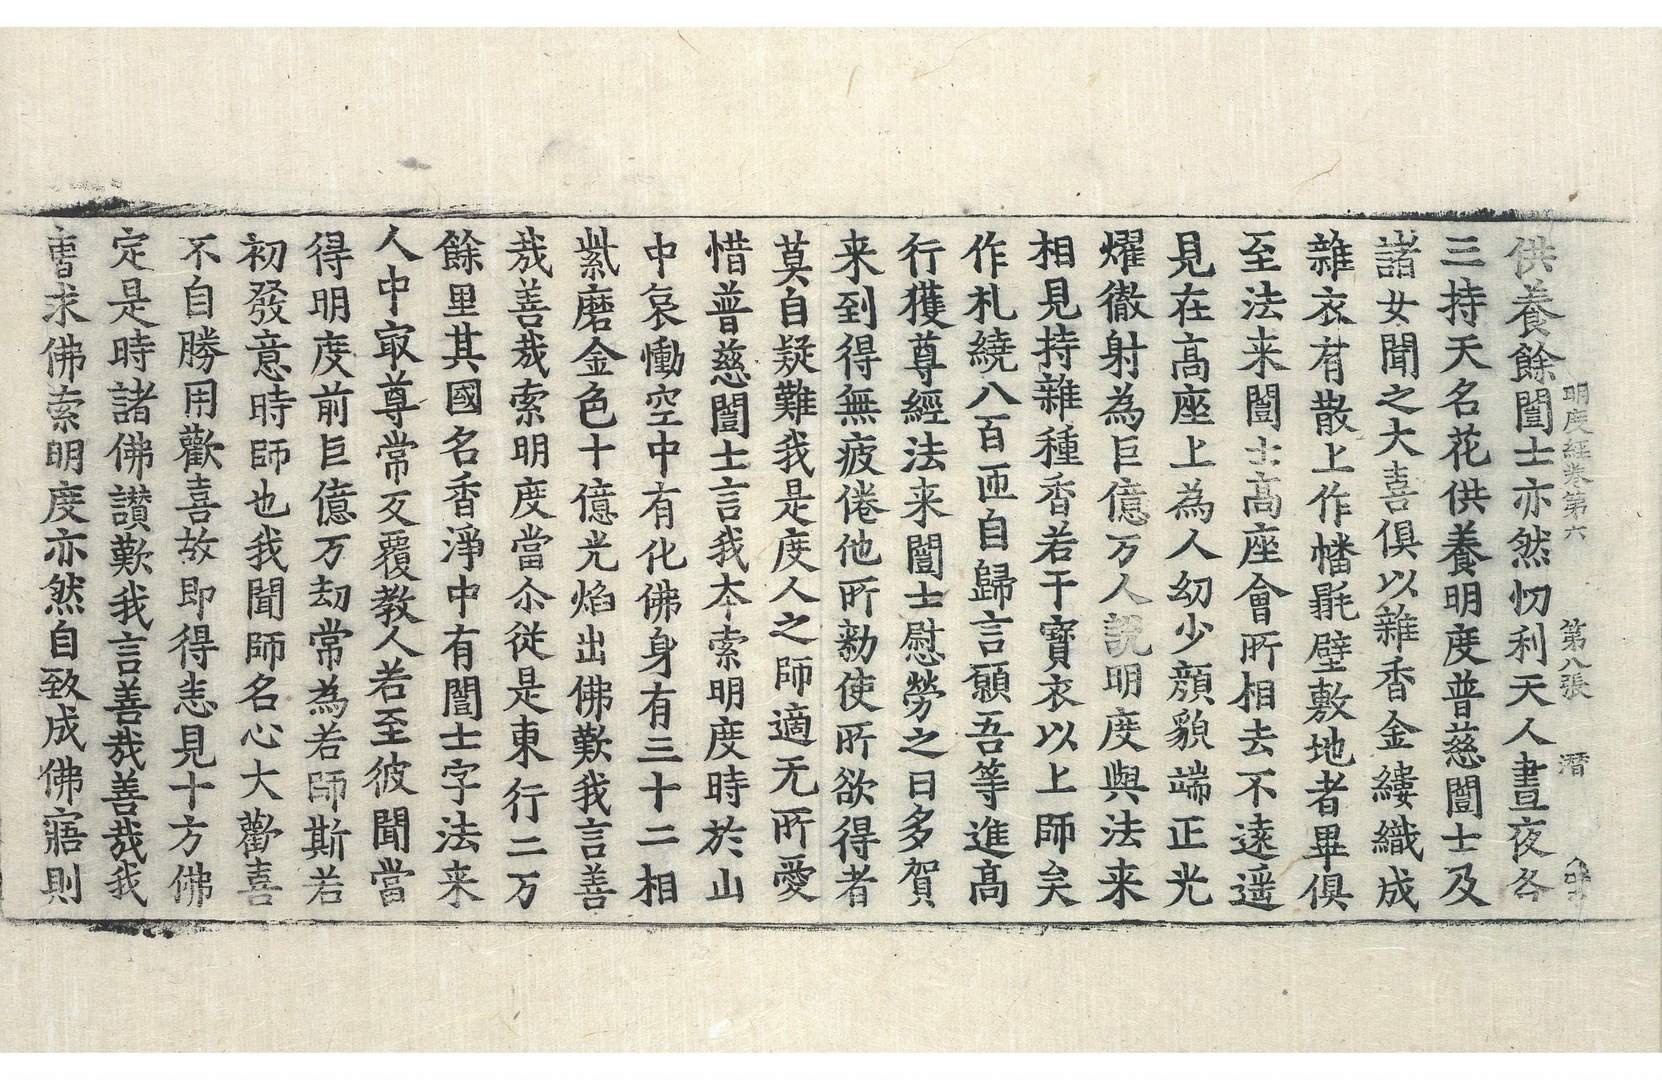 明度経卷第六 第八張 潛
供養餘闓士亦然忉利天人晝夜各
三持天名花供養明度普慈闓士及
諸女聞之大喜俱以雜香金縷織成
雜衣有散上作幡㲲壁敷地者畢俱
至法来闓士高座會所相去不遠遥
見在高座上為人幼少顔貌端正光
燿徹射為巨億万人說明度與法来
相見持雜種香若干寶衣以上師矣
作札繞八百匝自歸言願吾等進高
行獲尊經法来闓士慰勞之曰多賀
来到得無疲倦他所勑使所欲得者
莫自疑難我是度人之師適无所愛
惜普慈闓士言我夲索明度時於山
中哀慟空中有化佛身有三十二相
紫磨金色十億光焰出佛歎我言善
㢤善㢤索明度當尒從是東行二万
餘里其國名香淨中有闓士字法来
人中㝡尊常反覆教人若至彼聞當
得明度前巨億万劫常為若師斯若
初發意時師也我聞師名心大歡喜
不自勝用歡喜故即得志見十方佛
定是時諸佛讃歎我言善㢤善㢤我
曹求佛索明度亦然自致成佛寤則